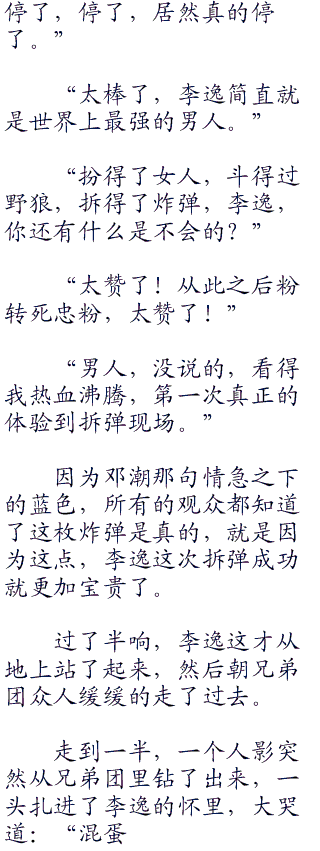 停了，停了，居然真的停
了。”
“太棒了，李逸简直就
是世界上最强的男人。”
“扮得了女人，斗得过
野狼，拆得了炸弹，李逸，
你还有什么是不会的？”
“太赞了！从此之后粉
转死忠粉，太赞了！”
“男人，没说的，看得
我热血沸腾，第一次真正的
体验到拆弹现场。”
因为邓潮那句情急之下
的蓝色，所有的观众都知道
了这枚炸弹是真的，就是因
为这点，李逸这次拆弹成功
就更加宝贵了。
过了半响，李逸这才从
地上站了起来，然后朝兄弟
团众人缓缓的走了过去。
走到一半，一个人影突
然从兄弟团里钻了出来，一
头扎进了李逸的怀里，大哭
道：“混蛋